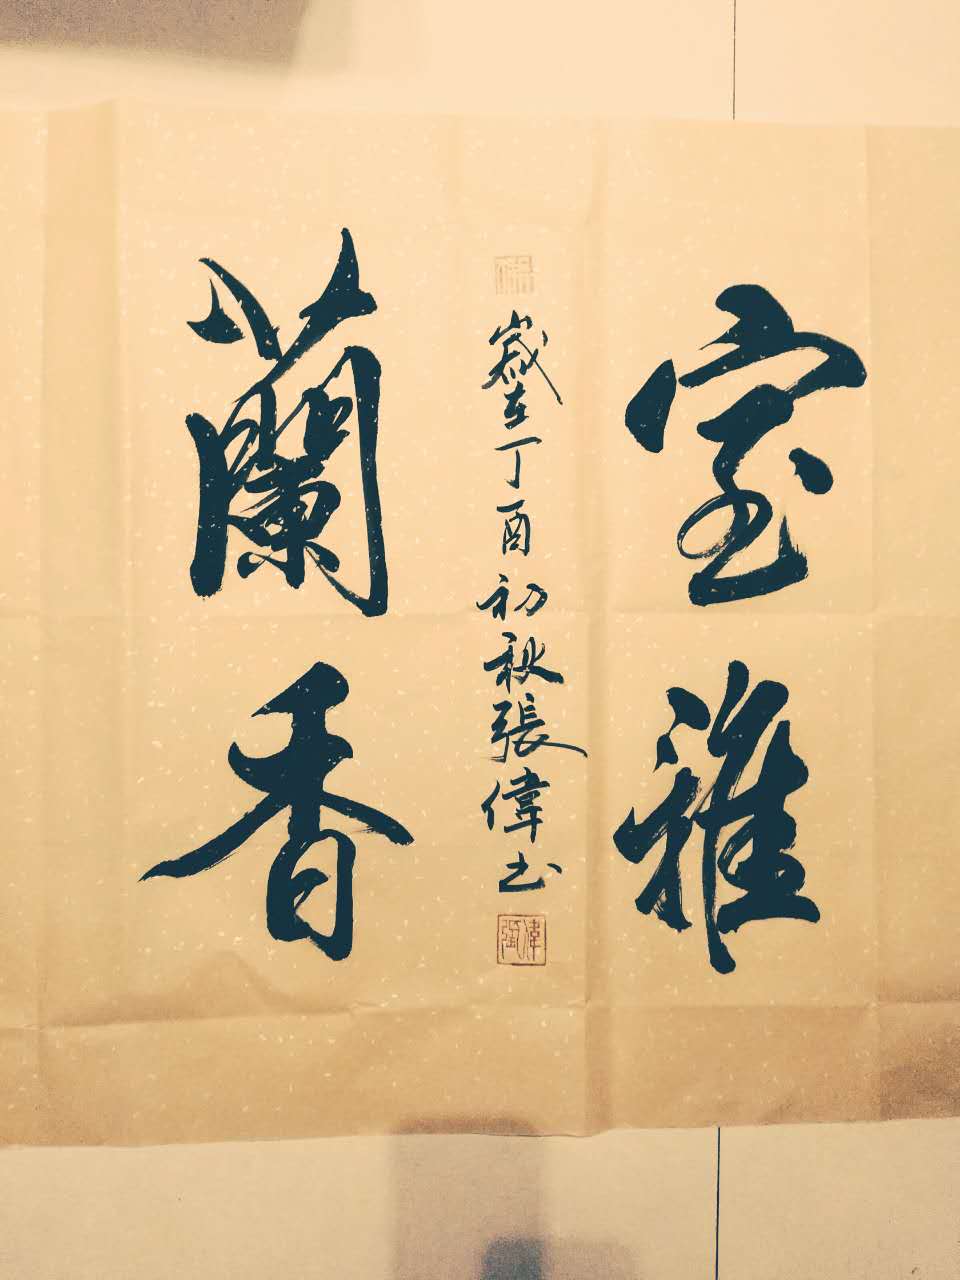 室雅
歲在丁酉初秋張偉書
蘭香
張偉